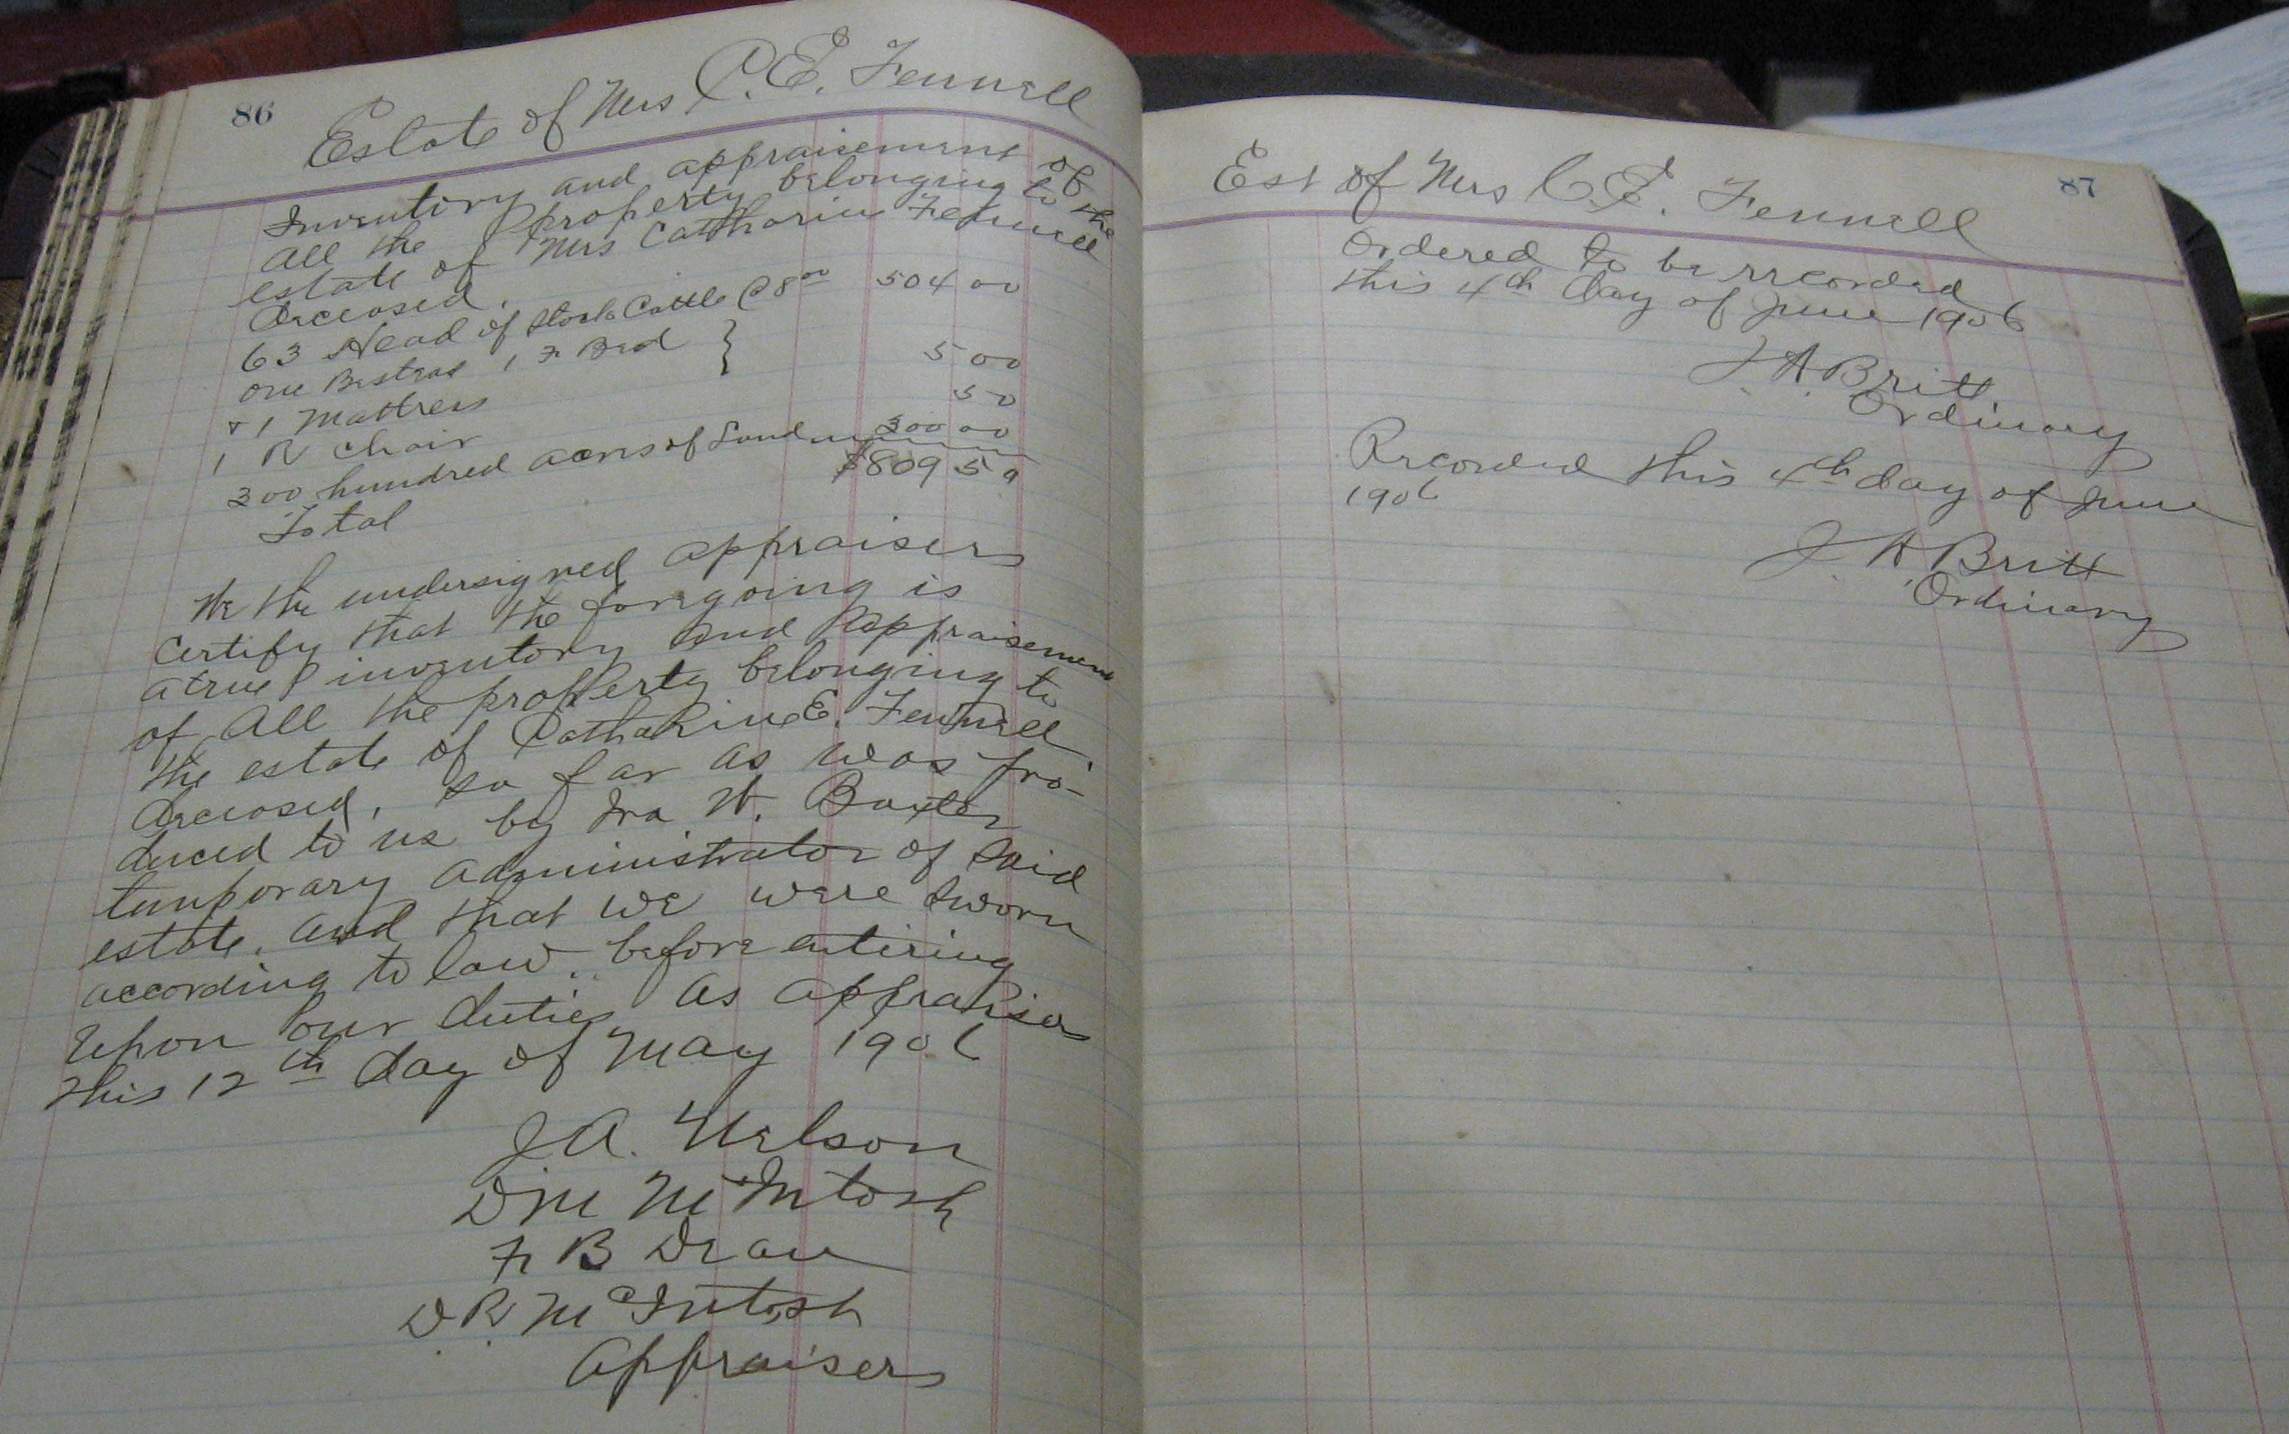 86
Estate of Mrs C. E. Fennell
Inventory and appraisement of
all the property belonging to the
estate of Mrs Catharin Fennell
deceased.
63 Head of Stock Cattle @ 8 00 504 00
one Bestead 1 F Bed }
& 1 Mattress 5 00
1 R Chair 50
300 hundred acres of Land 300 00
Total $809 50
We the undersigned appraisers
certify that the foregoing is
a true inventory and appraisement
of all the property belonging to
the estate of Catharine E. Fennell
deceased, so far as was pro-
duced to us by Ira W. Baxter
temporary administrator of said
estate. and that we were sworn
according to law. before entiring
upon our duties as appraiser
this 12th day of May 1906
J A. Nelson
D M McIntosh
F B Dean
D R. McIntosh
Appraisers
87
Est of Mrs C. E. Fennell
Ordered to be recorded
this 4th day of June 1906
J. A. Britt
Ordinary
Recorded this 4th day of June
1906
J. A Britt
Ordinary